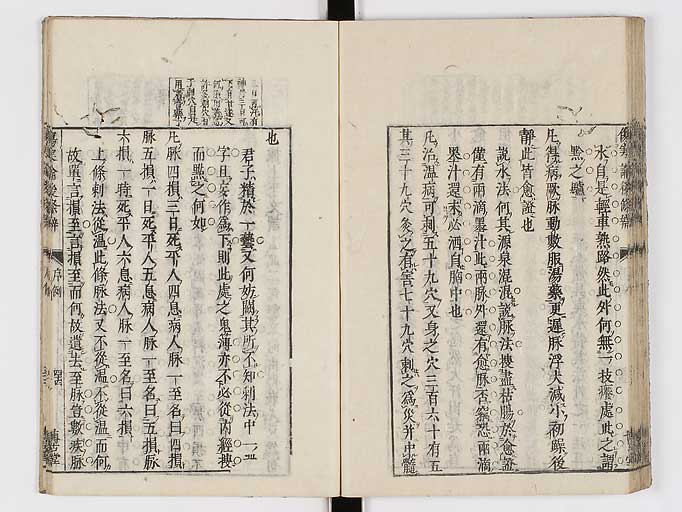 水自是輕車熟路然此外何無一技癢處此之謂
黔之驢
凡得病厥脉動數服湯藥更遲脉浮大減小初躁後
靜此皆愈證也
說水法何其源泉混混說脉法搜盡枯腸於愈證
僅有兩滴墨汁此兩脉外還有愈脉否竊恐兩滴
墨汁還未必洒自胸中也
凡治溫病可刺五十九穴又身之穴三百六十有五
其三十九穴灸之有害七十九穴刺之為災并中髓
也
君子精於一藝又何妨闕其所不知刺法中
字且妄作為下則此處之鬼薄亦不必從內經搜
而點之何如
凡脉四損三日死平人四息病人脉一至名曰四損
脉五損一日死平人五息病人脉一至名曰五損脉
六損一時死平人六息病人脉一至名曰六損
上條刺法從溫此條脉法又不從溫不從溫而何
故單言損至言損至而何故遺去至脉豈數疾脉
序例